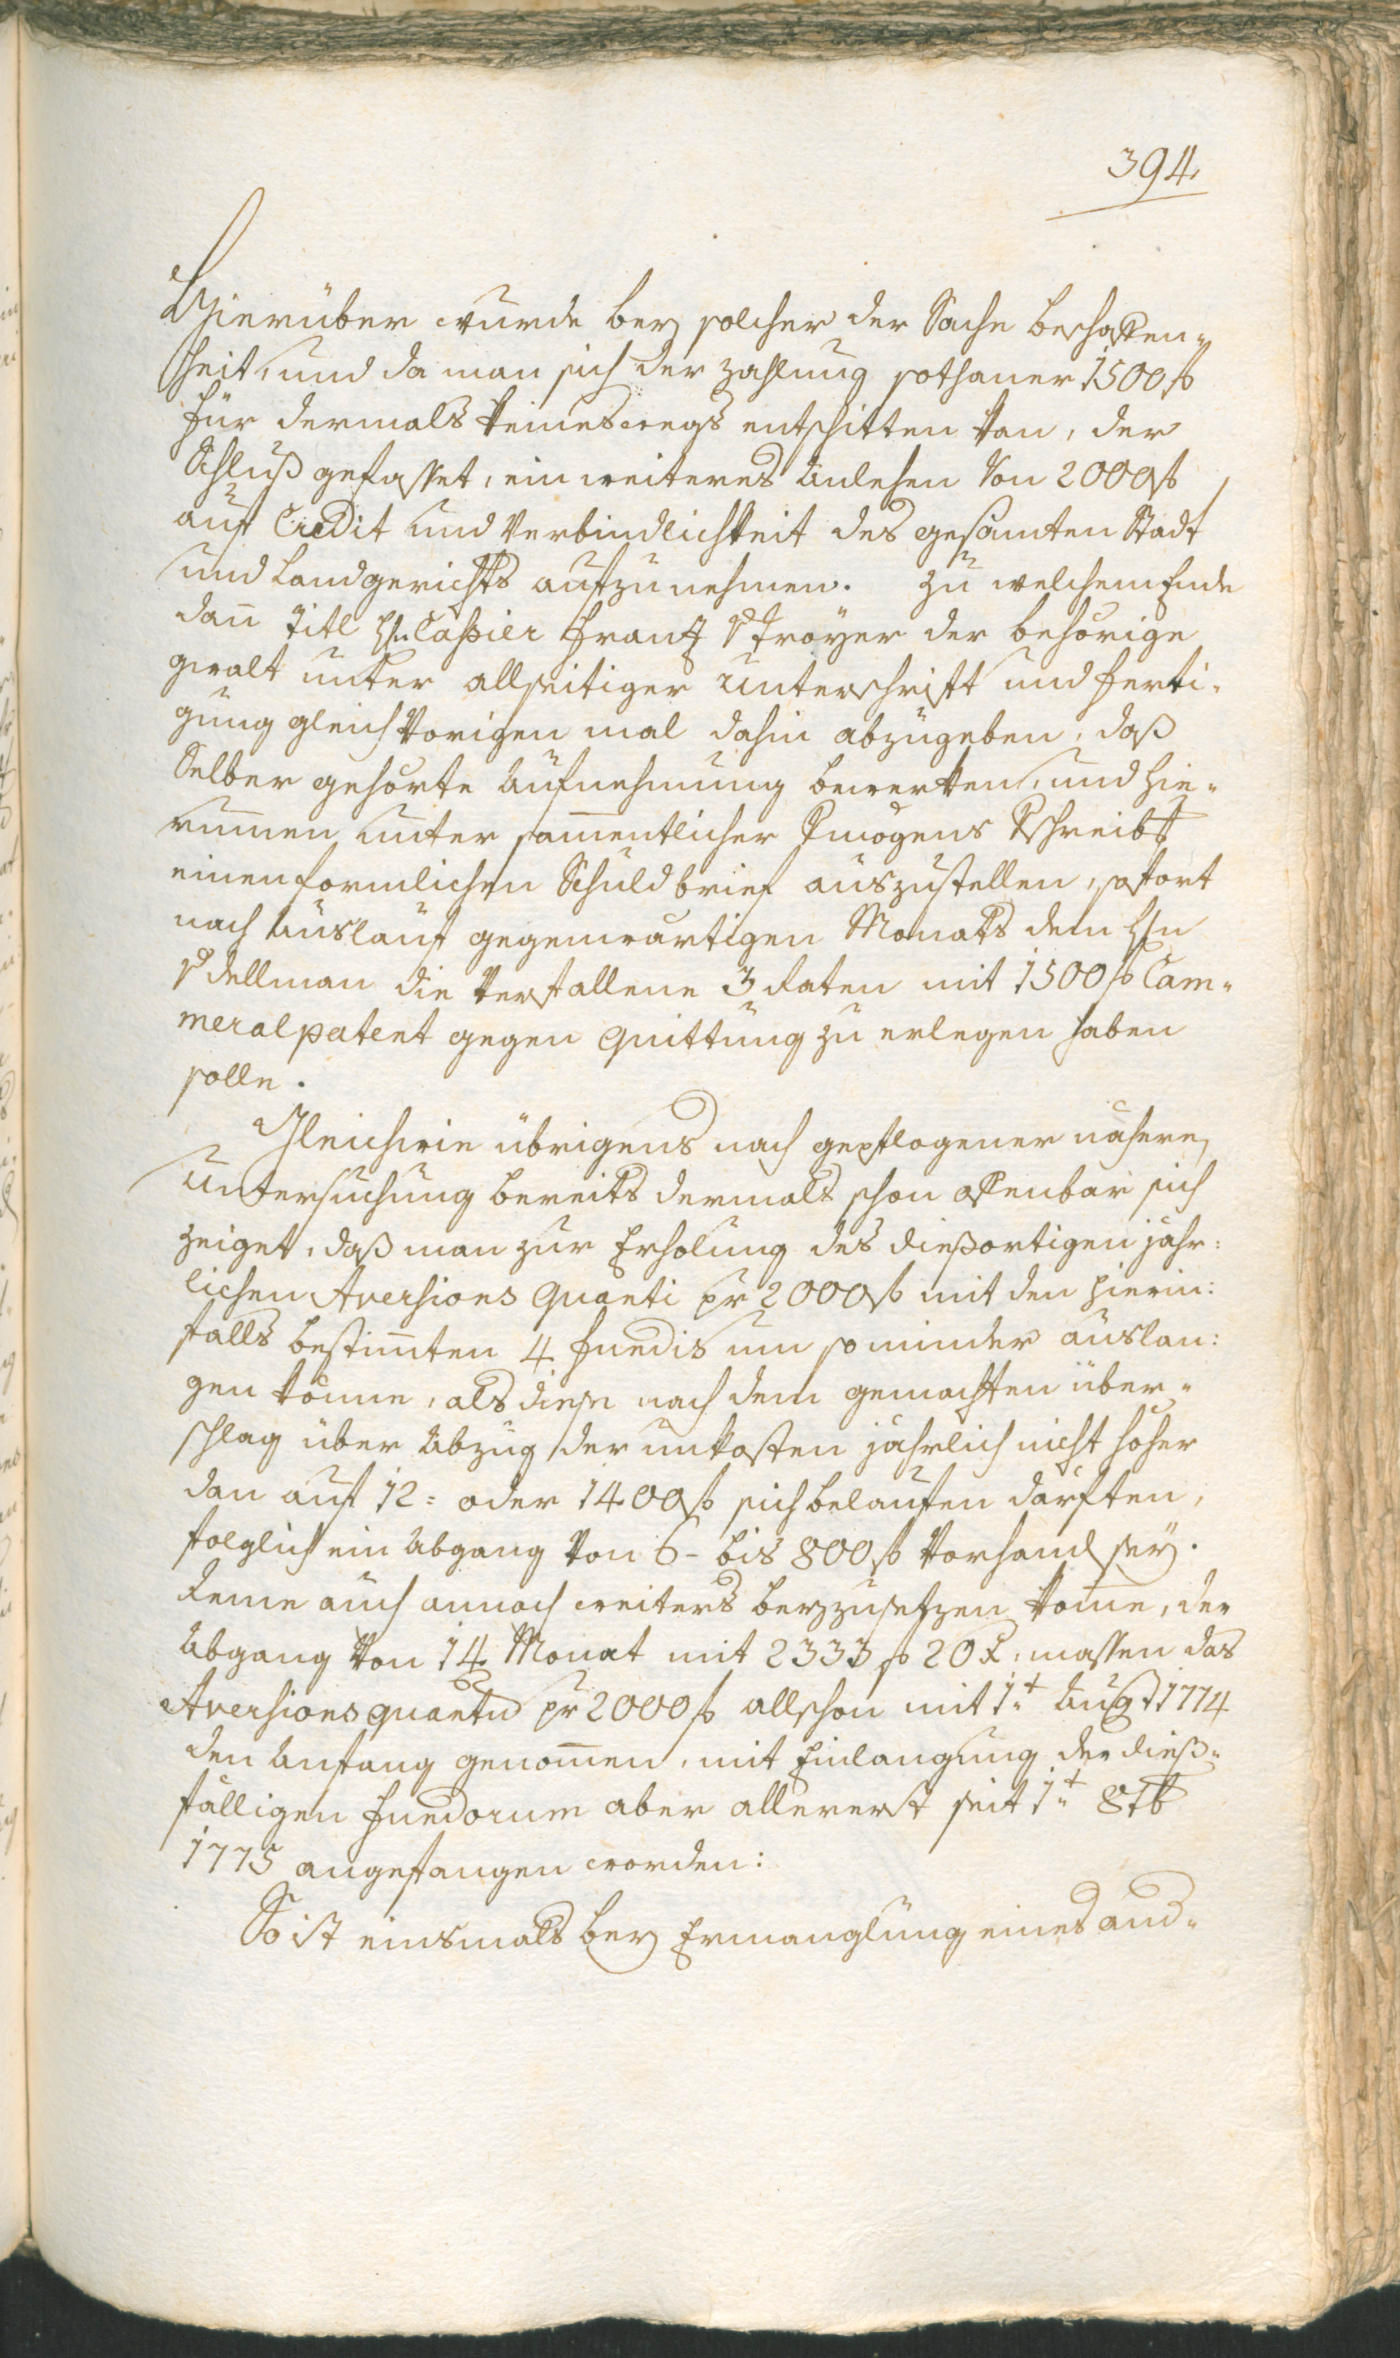 394.
Hierüber wurde bey solcher der Sache beschaffen-
heit, und da man sich der Zahlung sothaner 1500 f
für dermals keineswegs entschitten kan, der
Schluß gefasset, ein weiteres Anlehen von 2000 f
auf Credit und Verbindlichkeit des gesamten Stadt
und Landgerichts aufzunehmen. Zu welchem Ende
dan̄ Titl H: Cassier Frantz v Troyer der behörige
gwalt unter allseitiger Unterschrift und Ferti-
gung gleich vorigen mal dahin abzugeben, daß
Selber gehörte Aufnehmung bewerken, und hie-
rum̄en unter sam̄entlicher Vmögens Vschreibg
einen formlichen Schuldbrief auszustellen, sofort
nach Auslauf gegenwärtigen Monats dem Hn
v dellman die verfallene 3 Raten mit 1500 f Cam-
meralpatent gegen Quittung zu erlegen haben
solle.
Gleichwie übrigens nach gepflogener nähern
Untersuchung bereits dermals schon offenbar sich
zeiget, daß man zur Erholung des dießortigen jähr:
lichen Aversions Quanti pr 2000 f mit den hierin:
falls bestim̄ten 4 Fundis um so minder auslan:
gen könne, als diese nach dem gemachten über-
schlag über Abzug der unkosten jährlich nicht höher
dan auf 12 = oder 1400 f sich belaufen därften,
folglich ein Abgang von 6 - bis 800 f vorhand seÿ.
deme auch annoch weiters beyzusetzen kom̄e, der
Abgang von 14 Monat mit 2333 f 20 x, massen das
Aversionsquantu pr 2000 f allschon mit 1t Augt 1774
den Anfang genom̄en, mit Einlangung der dieß-
fälligen Fundorum aber allererst seit 1t 8tb
1775 angefangen worden:
So ist einsmals bey Ermanglung eines and-